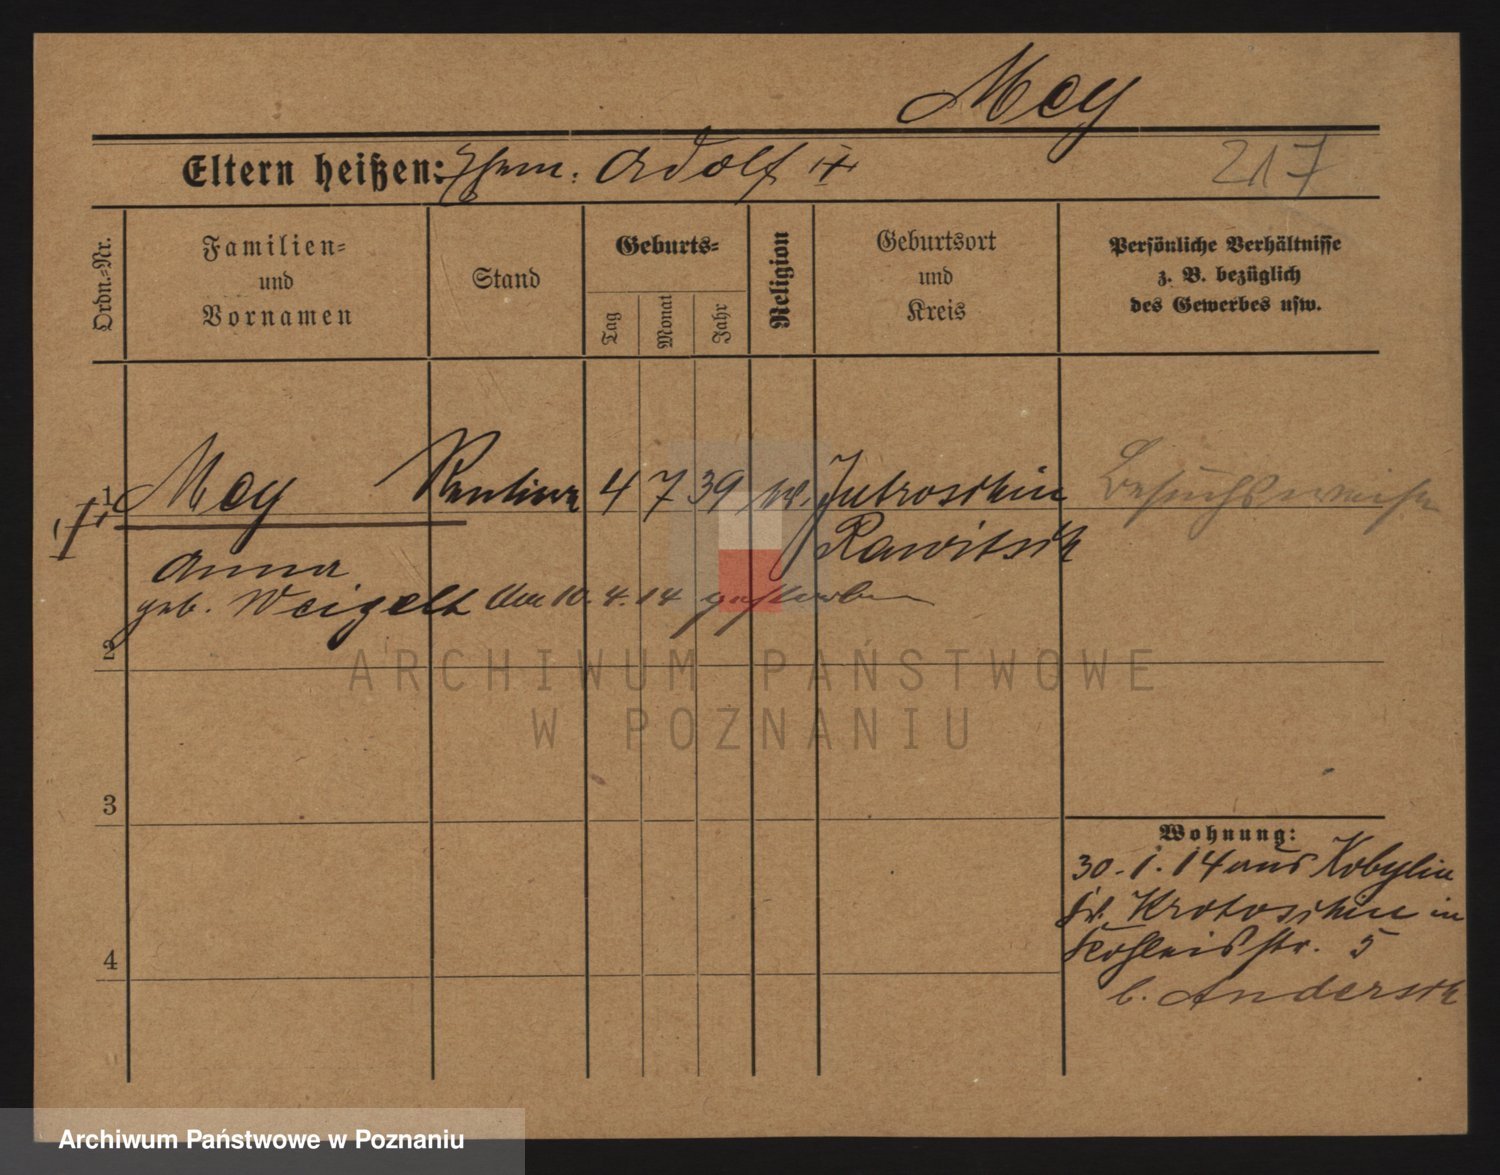 Mey
Eltern heißen: Ehem. Adolf
217
Ordn.-Nr.
Familien-
und
Vornamen
Stand
Geburts-
Tag
Monat
Jahr
Religion
Geburtsort
und
Kreis
Persönliche Verhältnisse
z. B. bezüglich
des Gewerbes usw.
1 Mey 4 7 39 Jutroschin Besuchsweise
Rawitsch
Anna
geb. Weigelt den 10.4.14 gestorben
2
ARCHIWUM PAŃSTWOWE
W POZNANIU
3
Wohnung:
30.1.14 aus Kobylin
Kr. Krotoschin in
4
5
b. Andersch
Archiwum Państwowe w Poznaniu